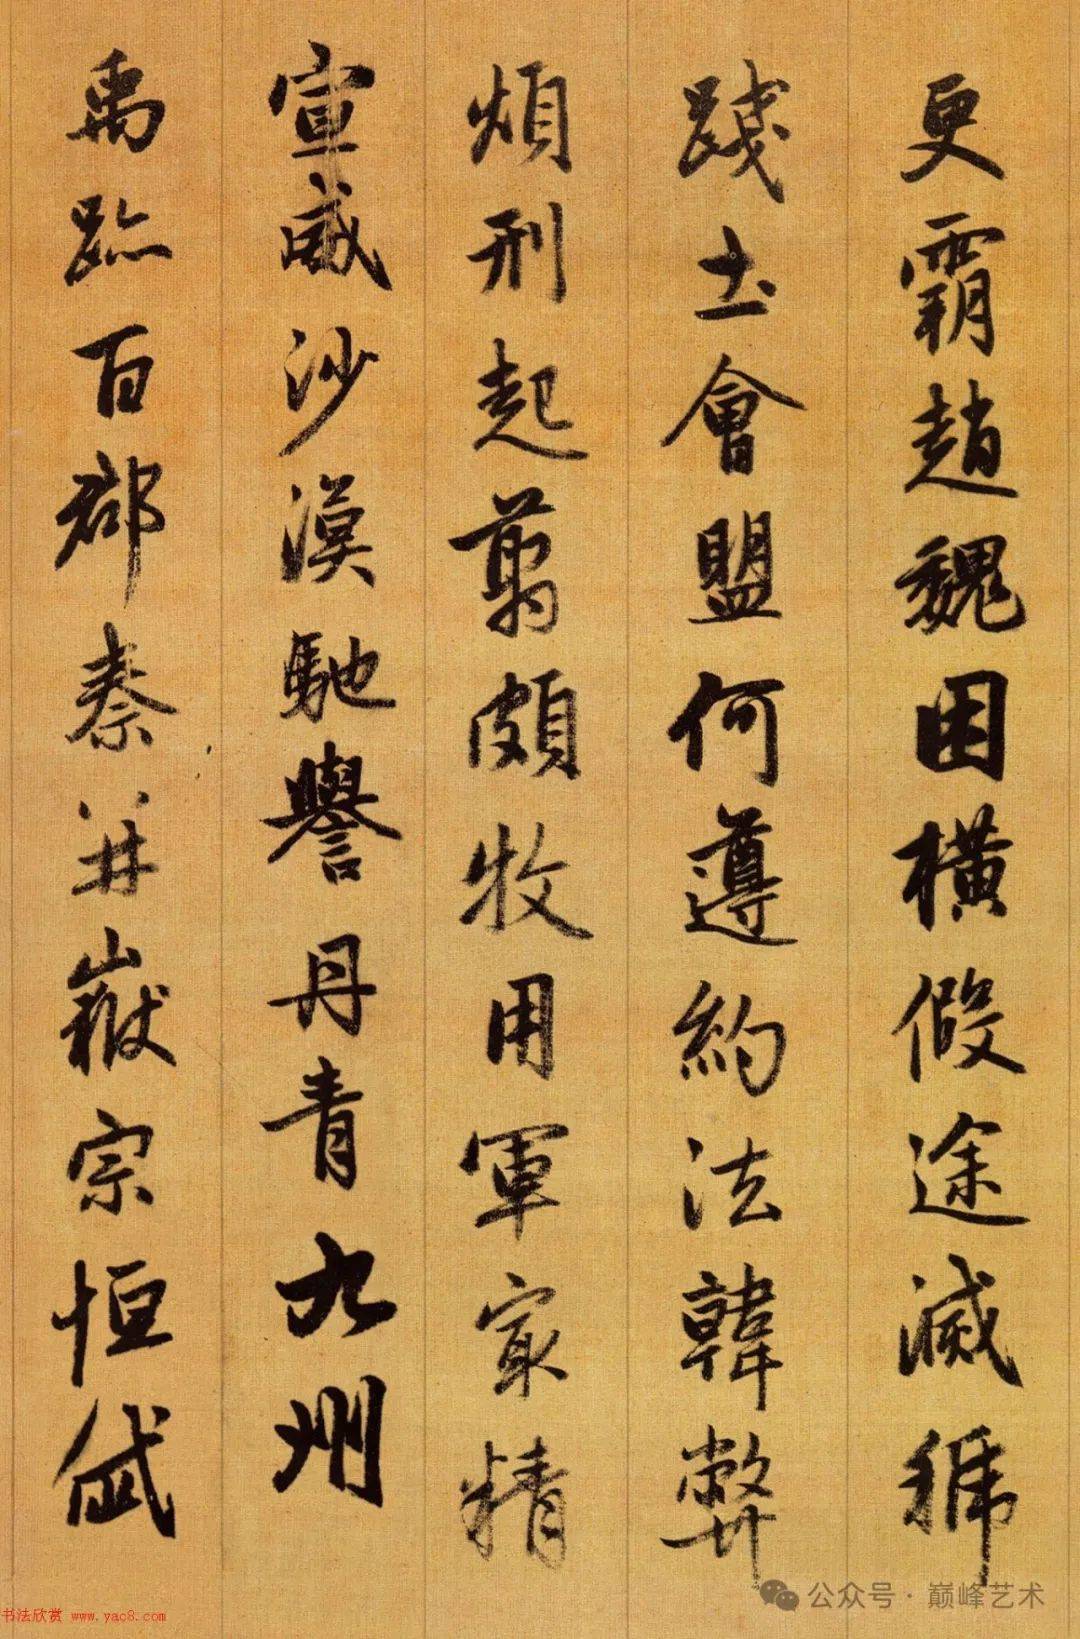 更霸趙魏困橫假途滅虢
踐土會盟何遵約法韓弊
煩刑起翦頗牧用軍冣精
宣威沙漠馳譽丹青九州
禹跡百郡秦并嶽宗恒岱
公众号 · 巅峰艺术
书法欣赏 www.yac8.com